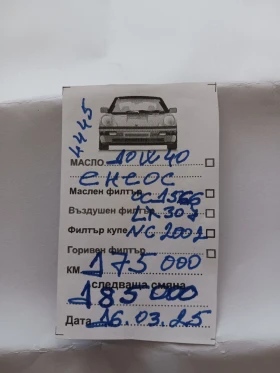 4445
МАСЛО 10W40
енеос
Маслен филтър OC1566
Въздушен филтър LX307
Филтър купе NC2002
Горивен филтър
КМ. 175000
следваща смяна
185000
Дата 16.03.25